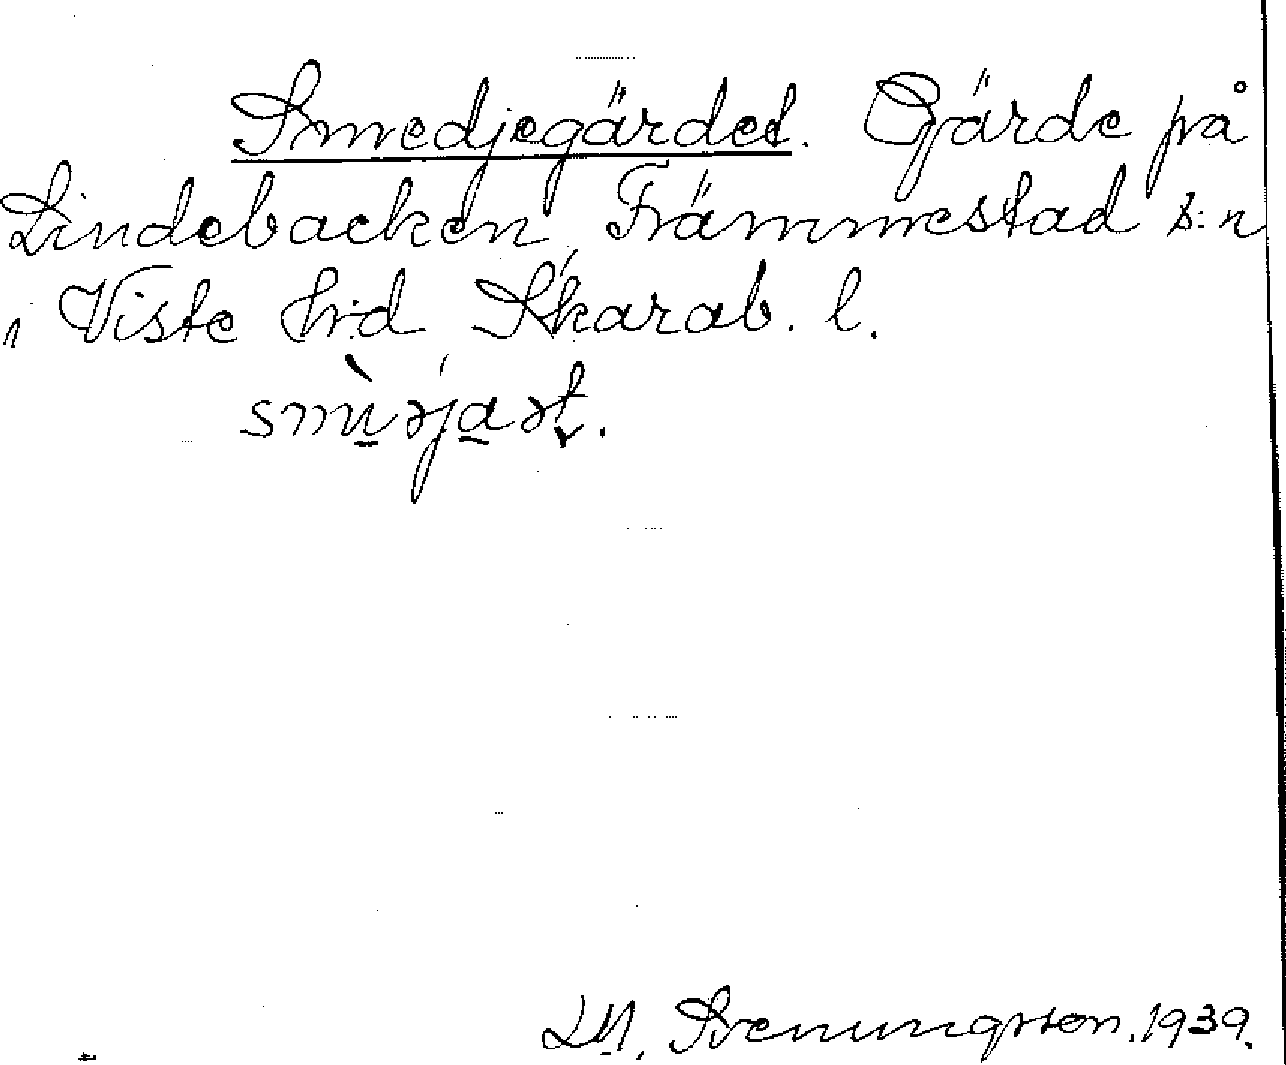 Smedjegärdet. Gärde på
Lindebacken, Främmestad s:n
i Viste hrd Skarab. l.
Svenungsson. 1939.